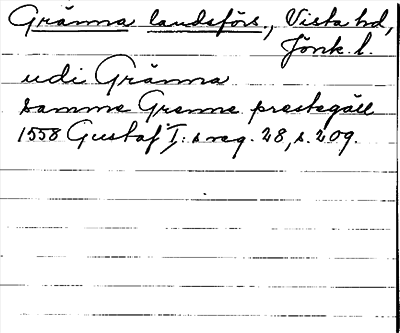 Gränna landsförs., Vista hd,
Jönk. l.
udi Gränna
samme Grenne prestegäll
1558 Gustaf I: s reg. 28, s. 209.